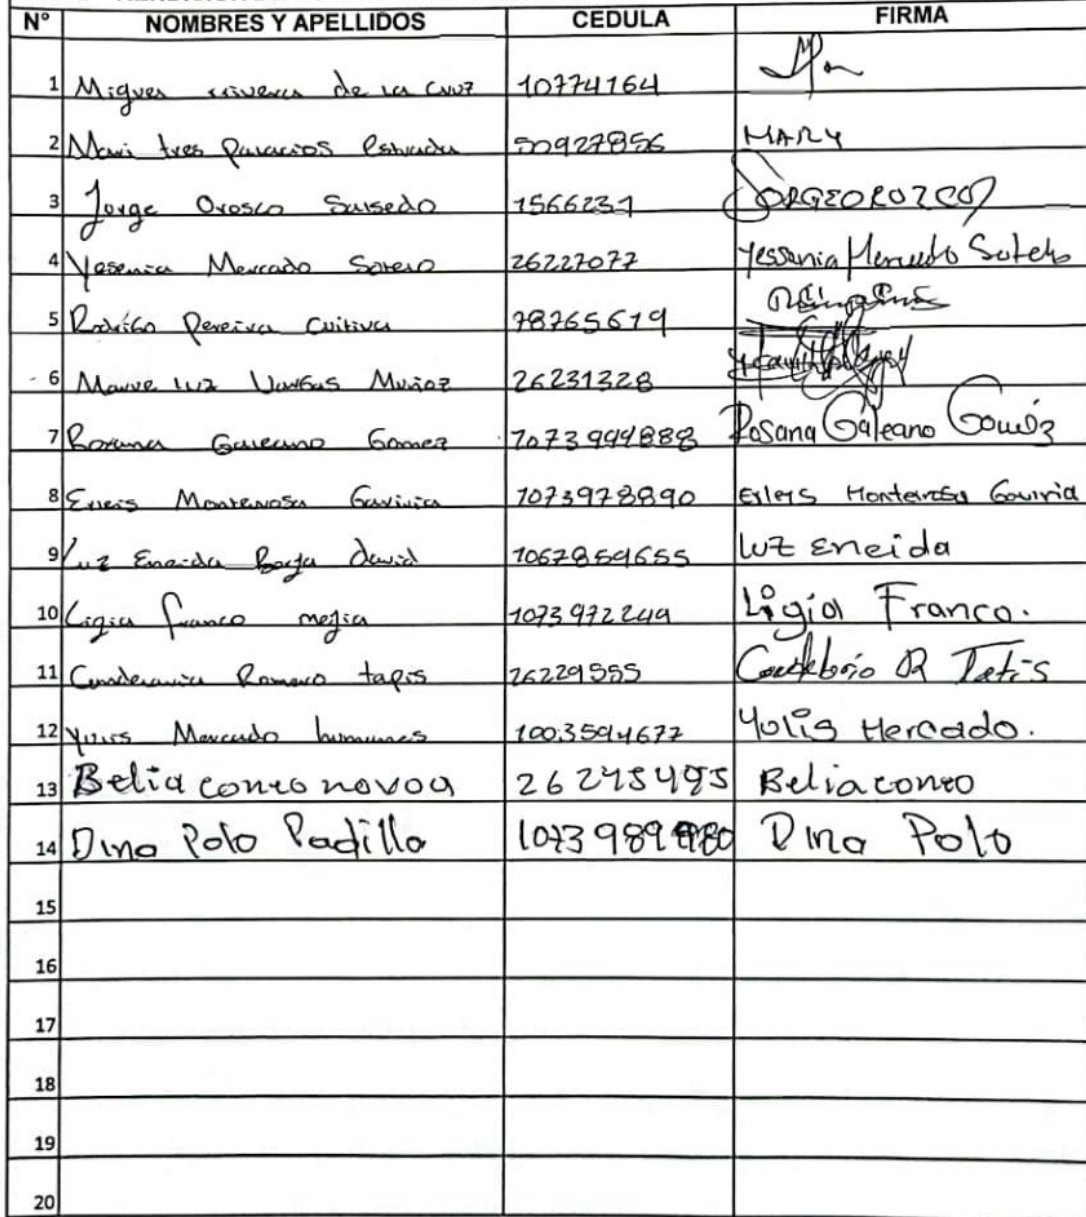 N° NOMBRES Y APELLIDOS CEDULA FIRMA
1 Miguel rivera de la Cruz 10774164
2 Mari tres palacios Estrada 50927856 MARY
3 Jorge Orosco Salsedo 1566231 JORGE OROZCO
4 Yesenia Mercado Sotelo 26227077 Yessenia Mercado Sotelo
5 Rodrigo Pereira Cuitiva 78765619
6 luz Vargas Muñoz 26231328
7 Rosana Galeano Gomez 1073994888 Rosana Galeano Gomez
8 Eneis Montenosa Gaviria 1073978890 Gaviria
9 Luz Eneida Borja david 1067859655 luz Eneida
10 Ligia franco mejia 1073972249 Ligia Franco.
11 Romero tapis 26229555 R Tatis
12 Yulis Mercado 1003594677 Yulis Mercado.
13 Belia coneo novoa 26245495 Belia coneo
14 Dina Polo Padilla 1073989980 Dina Polo
15
16
17
18
19
20